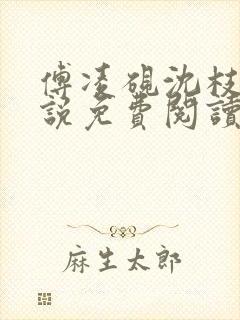 傅凌砚沈枝
說免費閱讀
麻生太郎